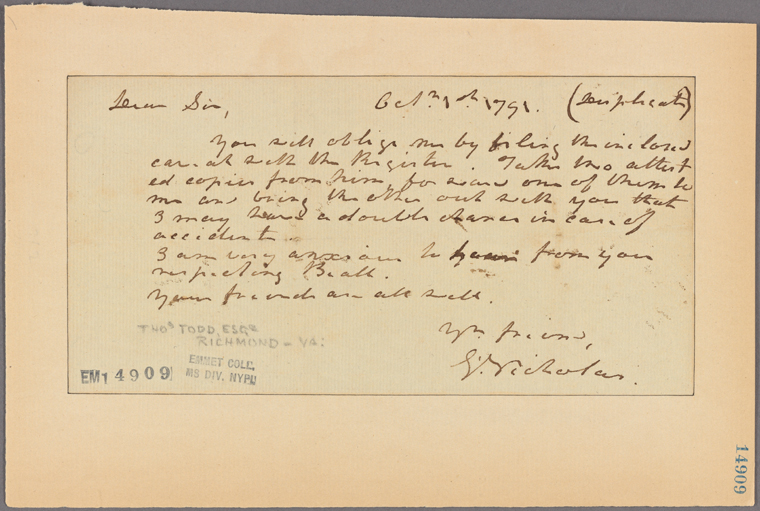 Dear Sir, Octr. 1st 1791. (Duplicate)
You will oblige me by filing the inclosed
caveat with the Register. Take two attest
ed copies from him, forward one of them to
me and bring the other out with you that
I may have a double chance in case of
accident.
I am very anxious to hear from you
respecting Beall.
Your friends are all well.
Yr. friend,
G. Nicholas.
THOS TODD, ESQR
RICHMOND - VA:
EMMET COLL.
MS DIV. NYPL
EM 14909
14909